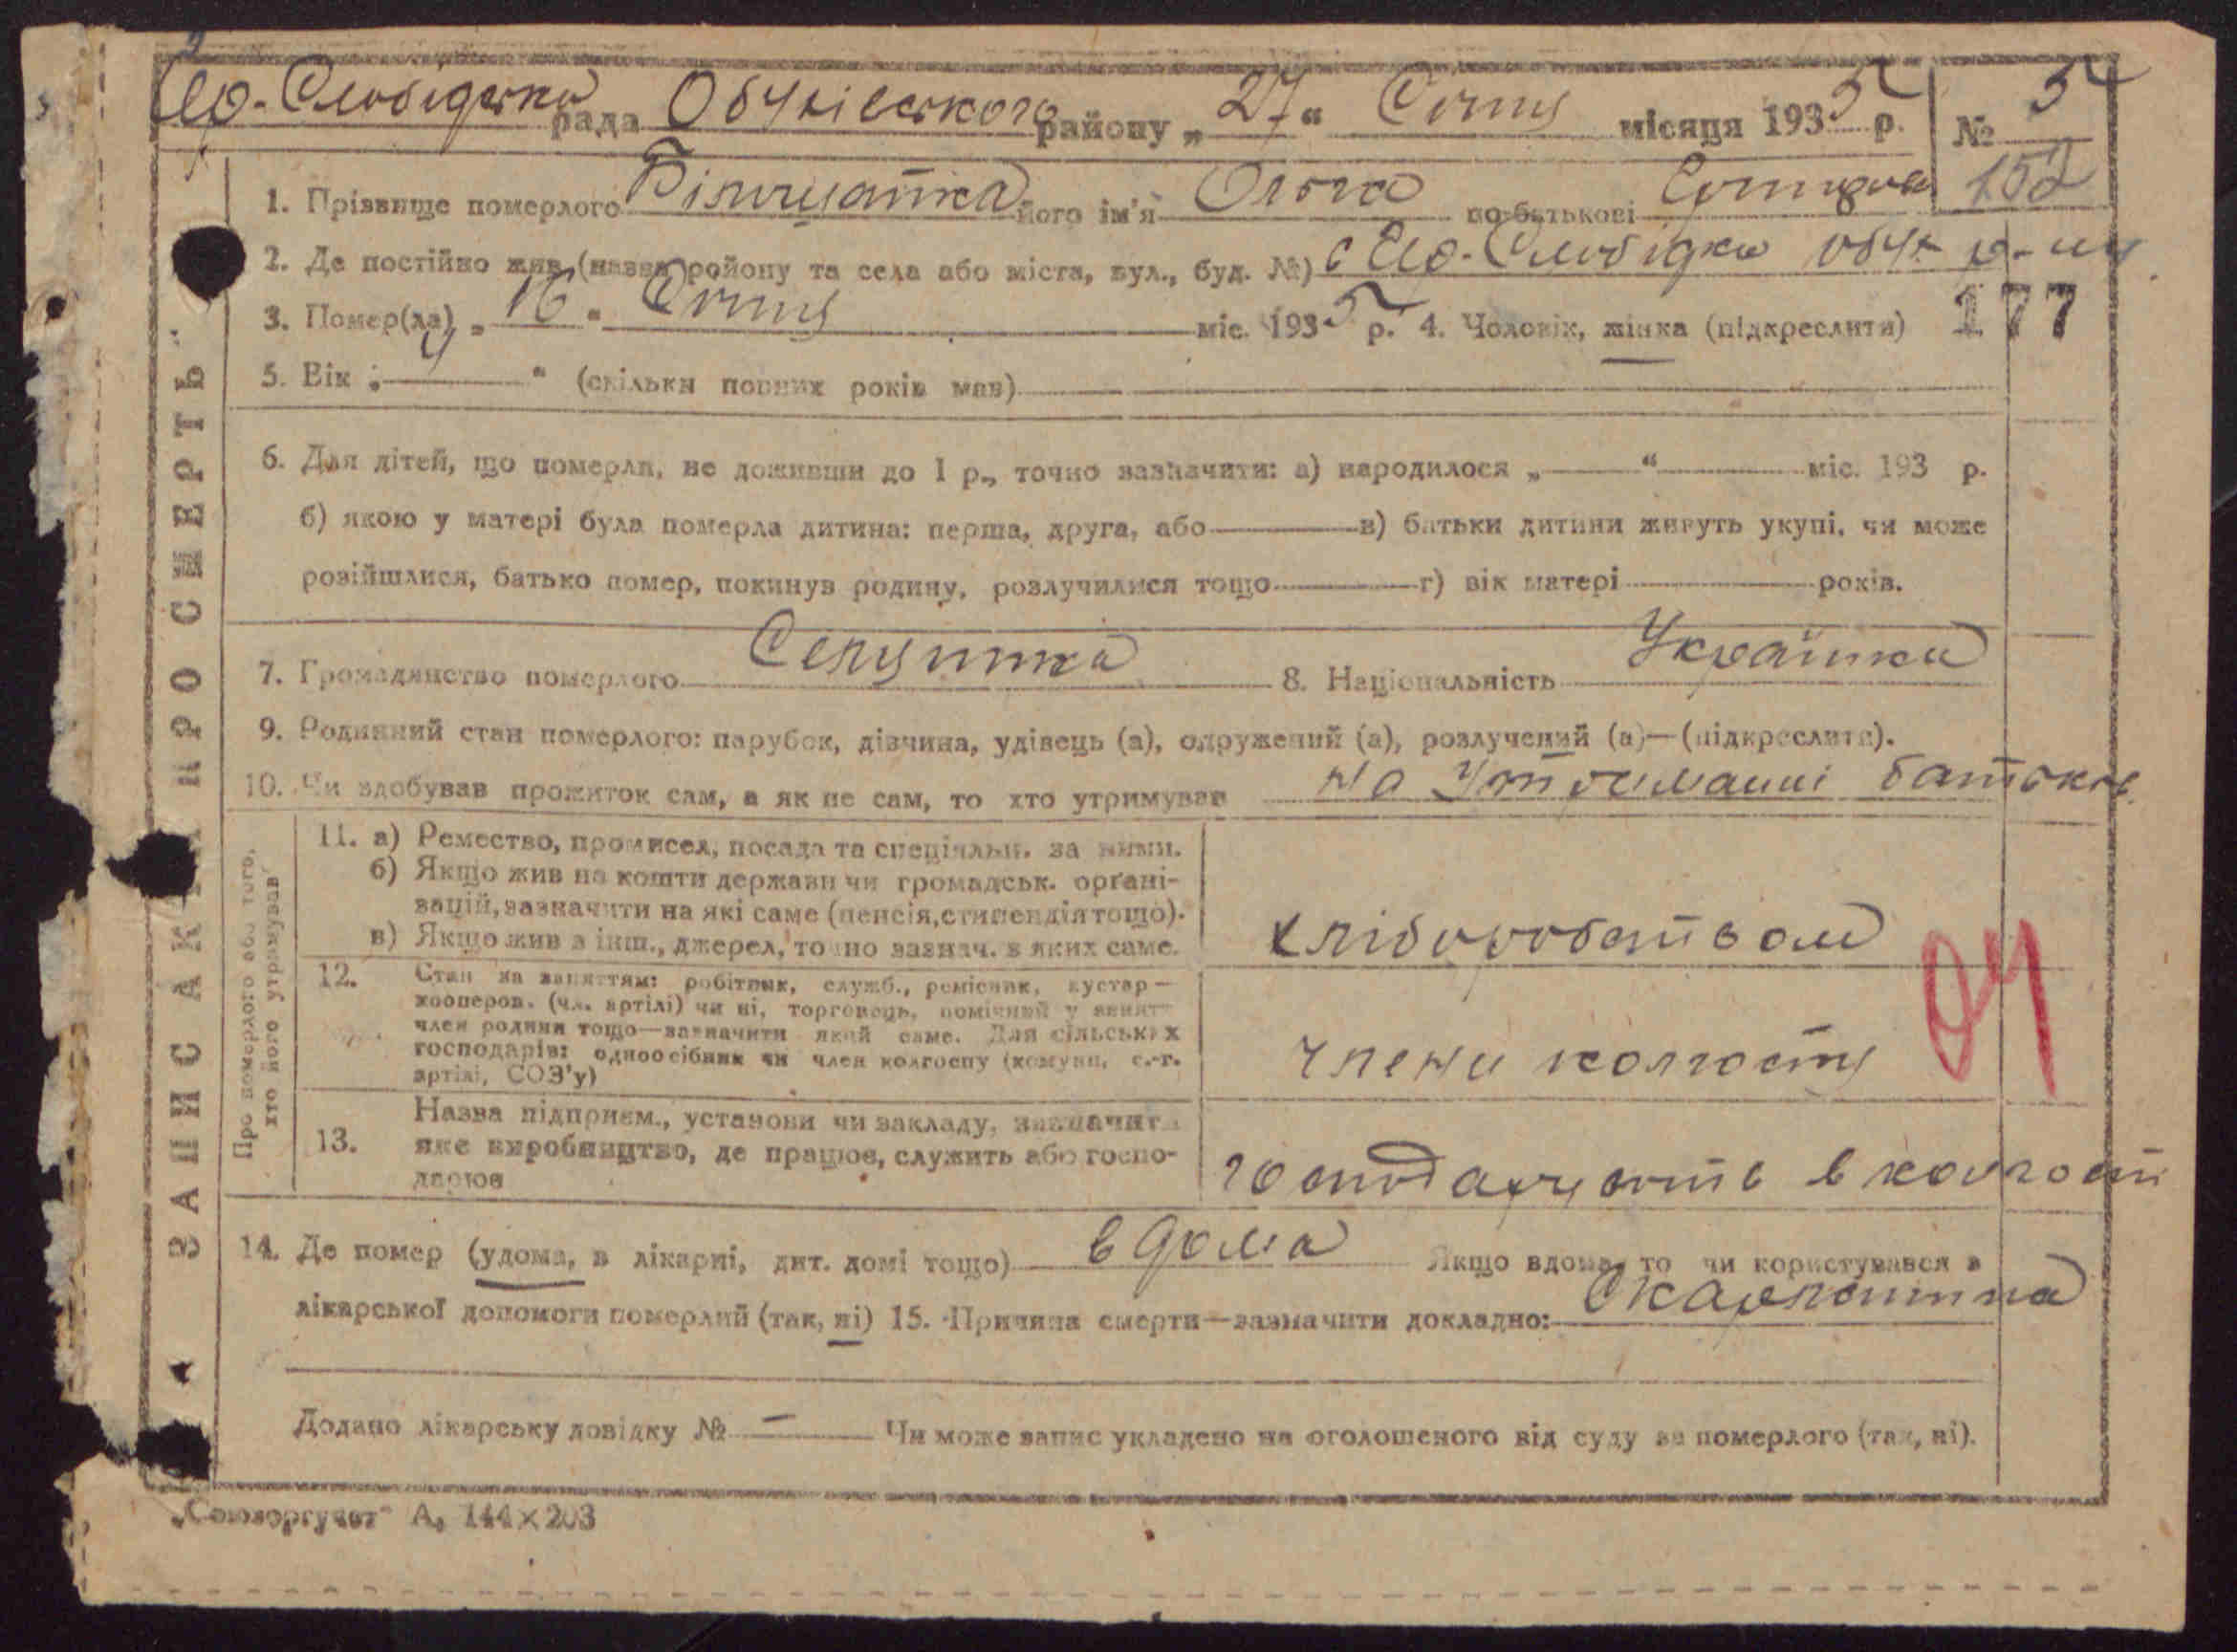 Єр-Слобідська рада Обухівського району „27“ Січня місяця 1935 р. № 5
1. Прізвище померлого його ім'я Ольга по батькові 152
2. Де постійно жив (назва району та села або міста, вул., буд. №) с Єр-Слобідка Обух р-ну
3. Помер(ла) „16“ Січня міс. 1935 р. 4. Чоловік, жінка (підкреслити) 177
5. Вік „4“ (скільки повних років мав)
6. Для дітей, що померли, не доживши до 1 р., точно зазначити: а) народилося „ “ міс. 193 р.
б) якою у матері була померла дитина: перша, друга, або в) батьки дитини живуть укупі, чи може
розійшлися, батько помер, покинув родину, розлучилися тощо г) вік матері років.
7. Громадянство померлого Селянка 8. Національність Українка
9. Родинний стан померлого: парубок, дівчина, удівець (а), одружений (а), розлучений (а)—(підкреслити).
10. Чи здобував прожиток сам, а як не сам, то хто утримував на утриманні батьків
ЗАПИС АКТА ПРО СМЕРТЬ
Про померлого або того,
хто його утримував
11. а) Ремество, промисел, посада та спеціяльн. за ними.
б) Якщо жив на кошти держави чи громадськ. органі-
зацій, зазначити на які саме (пенсія, стипендія тощо).
в) Якщо жив з інш., джерел, точно зазнач. з яких саме.
хліборобством
12. Стан за заняттям: робітник, служб., ремісник, кустар—
кооперов. (чл. артілі) чи ні, торговець, помічний у занят
член родини тощо—зазначити який саме. Для сільських
господарів: одноосібник чи член колгоспу (комуни, с.-г.
артілі, СОЗ'у)
члени колгоспу
04
13. Назва підприєм., установи чи закладу, зазначити
яке виробництво, де працює, служить або госпо-
дарює
господарюють в колгоспі
14. Де помер (удома, в лікарні, дит. домі тощо) в дома Якщо вдома, то чи користувався з
лікарської допомоги померлий (так, ні) 15. Причина смерти—зазначити докладно: Скарлатина
Додано лікарську довідку № — Чи може запис укладено на оголошеного від суду за померлого (так, ні).
„Союзоргучет“ А, 144×203